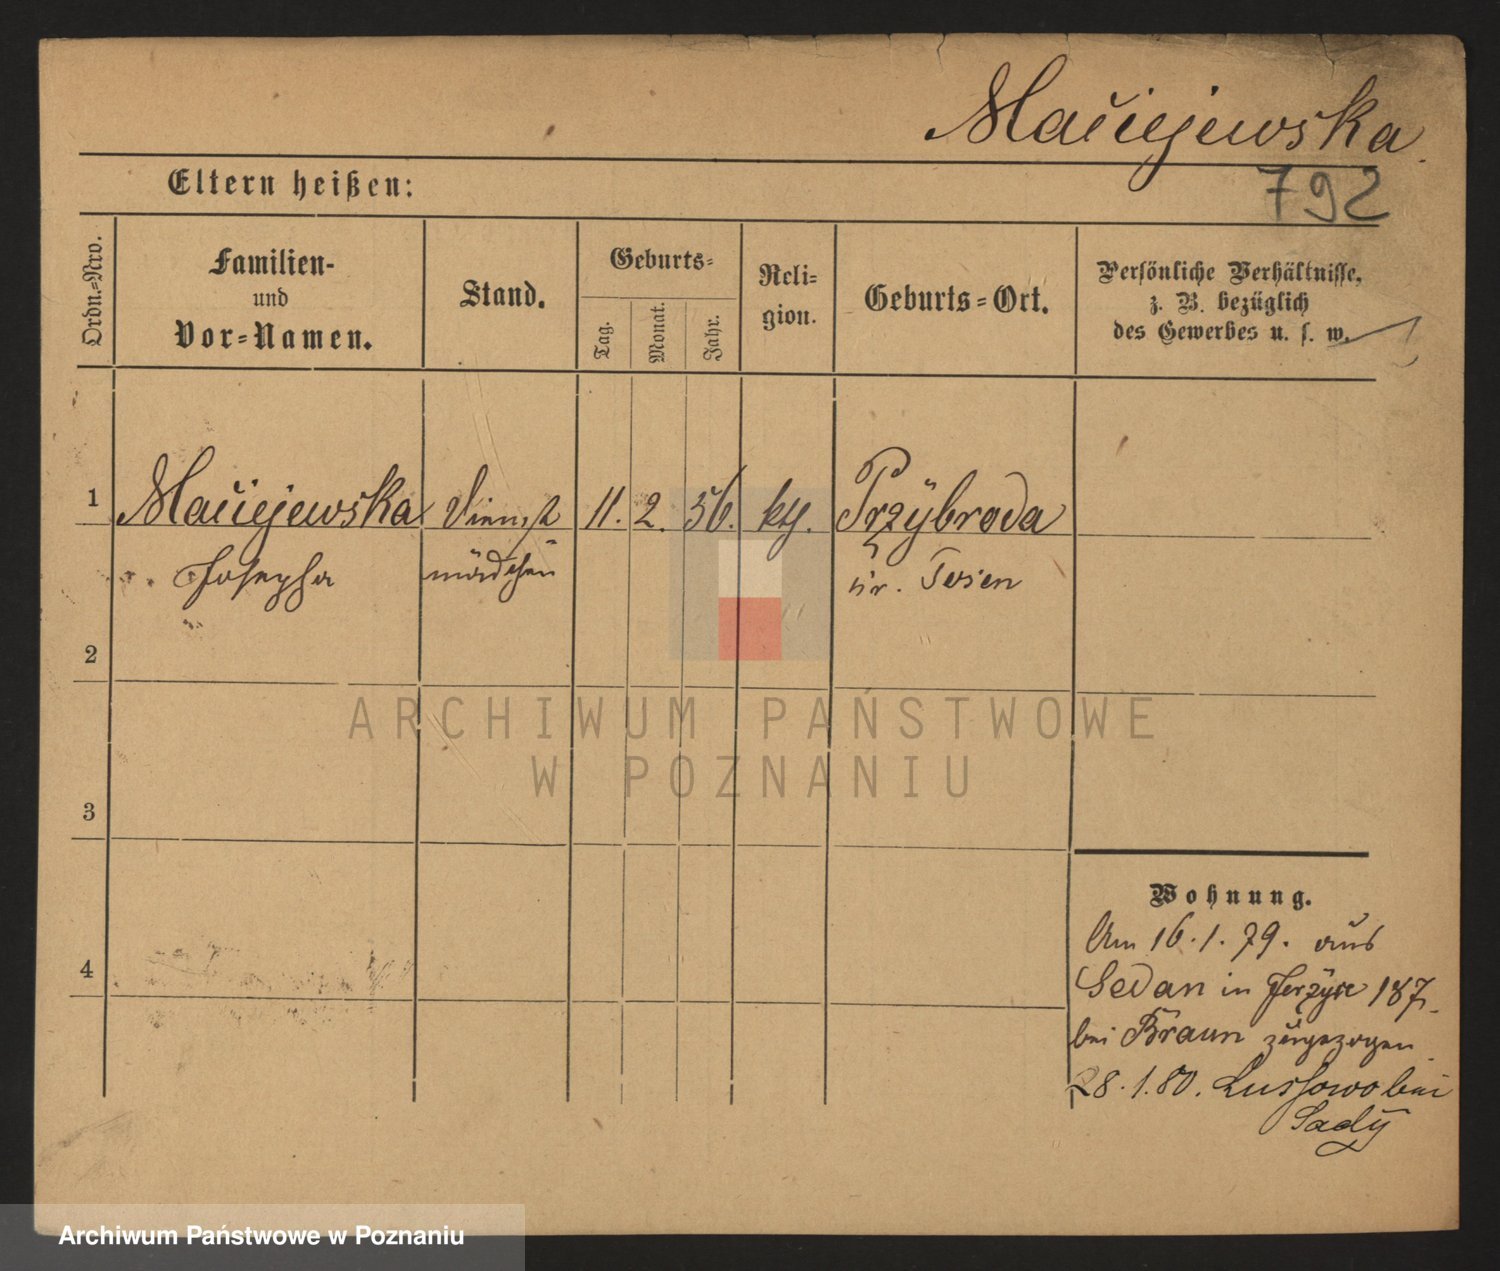 Maciejewska
792
Eltern heißen:
Ordn.-Nro.
Familien-
und
Vor-Namen.
Stand.
Geburts-
Tag.
Monat.
Jahr.
Reli-
gion.
Geburts-Ort.
Persönliche Verhältnisse,
z. B. bezüglich
des Gewerbes u. s. w.
1 Maciejewska Dienst 11. 2. 56. kth. Przybroda
Josepha mädchen kr. Posen
2
3
4
Wohnung.
Am 16.1.79. aus
Sedan in Jerzyce 187.
bei Braun zugezogen
28.1.80. Lussowo bei
Sady
ARCHIWUM PAŃSTWOWE
W POZNANIU
Archiwum Państwowe w Poznaniu